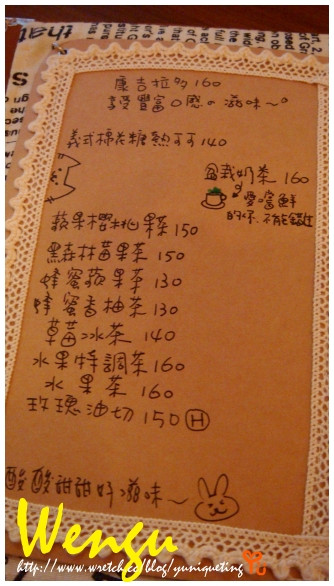 康吉拉多160
享受豐富口感の滋味~。
義式棉花糖熱可可140
盆栽奶茶 160
愛嚐鮮
的你.不能錯過
蘋果櫻桃果茶150
黑森林莓果茶150
蜂蜜蘋果茶130
蜂蜜香柚茶130
草莓冰茶 140
水果特調茶160
水果茶 160
玫瑰油切150Ⓗ
酸酸甜甜好滋味~
Wengu
http://www.wretch.cc/blog/yuniqueting